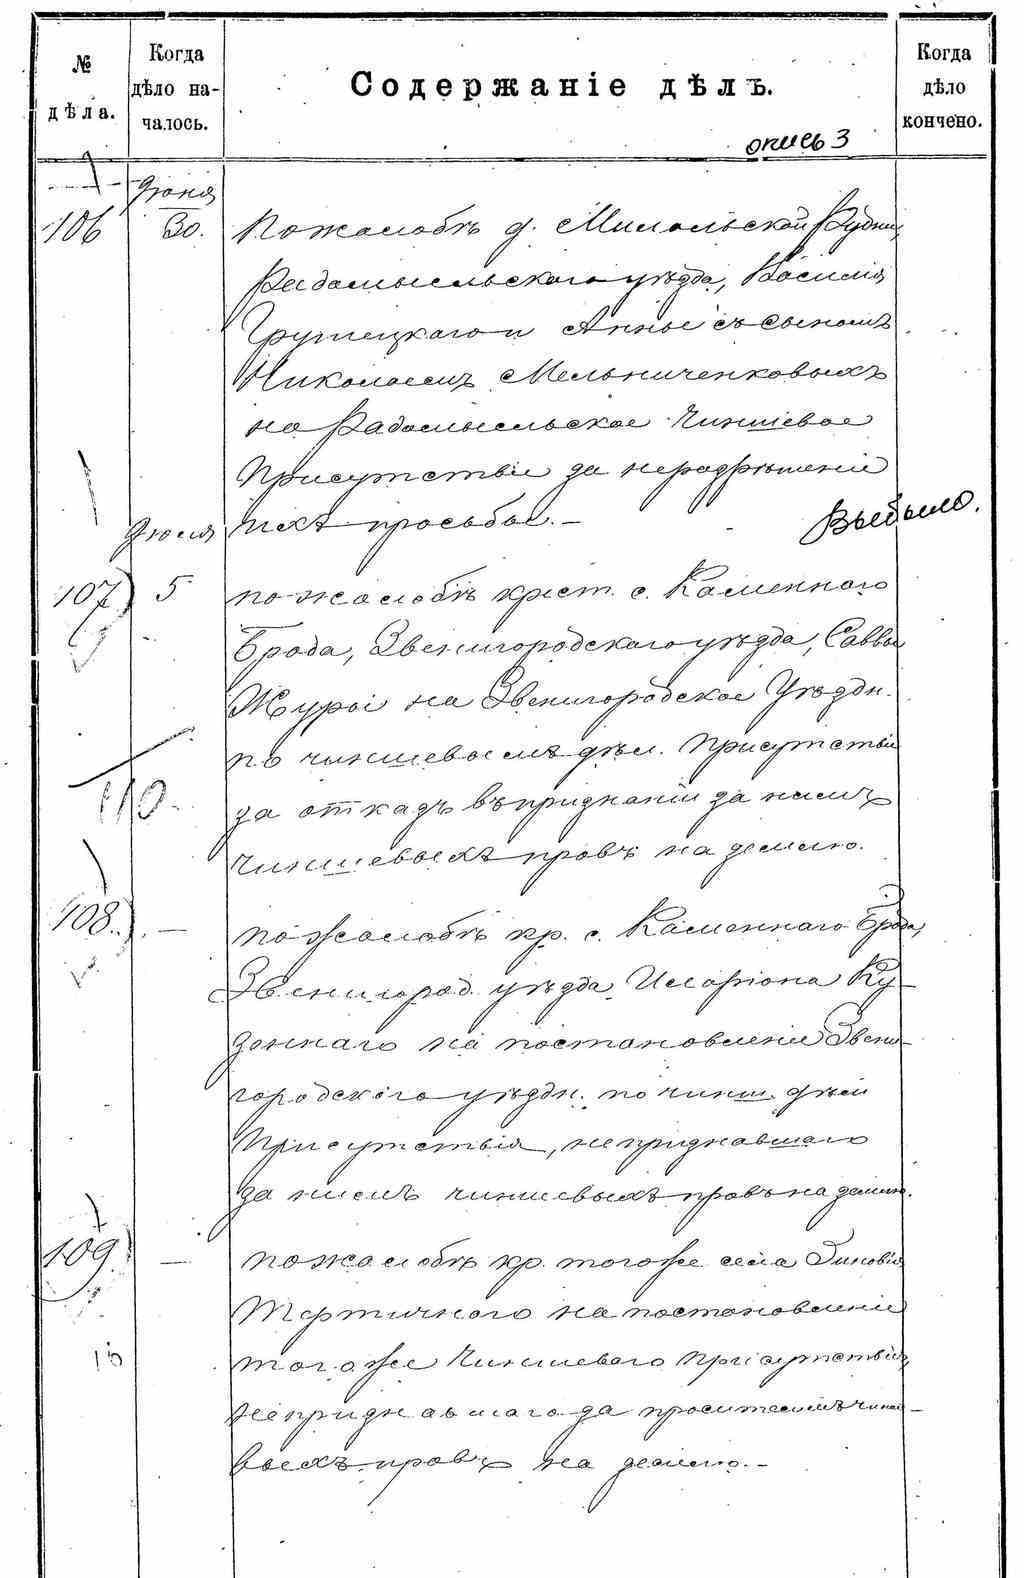 № дѣла.
Когда дѣло на-
чалось.
Содержаніе дѣлъ.
Когда дѣло кончено.
опись 3
Іюня
106 30. По жалобѣ д. Мигальской Рудни,
Радомысльскаго уѣзда, Василія
и Анны съ сыномъ
Николаемъ Мельниченковыхъ
на Радомысльское Чиншевое
Присутствіе за неразрѣшеніе
ихъ просьбы.–
Выбыло.
Іюля
107) 5 по жалобѣ крест. с. Каменнаго
Брода, Звенигородскаго уѣзда, Саввы
Журы на Звенигородское Уѣздн.
по чиншевымъ дѣл. Присутствіе
за отказъ въ признаніи за нимъ
чиншевыхъ правъ на землю.
110
108) — по жалобѣ кр. с. Каменнаго Брода,
Звенигород. уѣзда, Иларіона Ку-
на постановленіе Звени-
городскаго уѣздн. по чинш. дѣл.
Присутствія, непризнавшаго
за нимъ чиншевыхъ правъ на землю.
109) — по жалобѣ кр. того же села Зиновія
Тертичного на постановленіе
того же Чиншевого присутствія,
непризнавшаго за просителемъ чинше-
выхъ правъ на землю.–